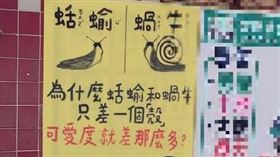 蛞蝓 蝸牛
為什麼蛞蝓和蝸牛
只差一個殼
可愛度就差那麼多?